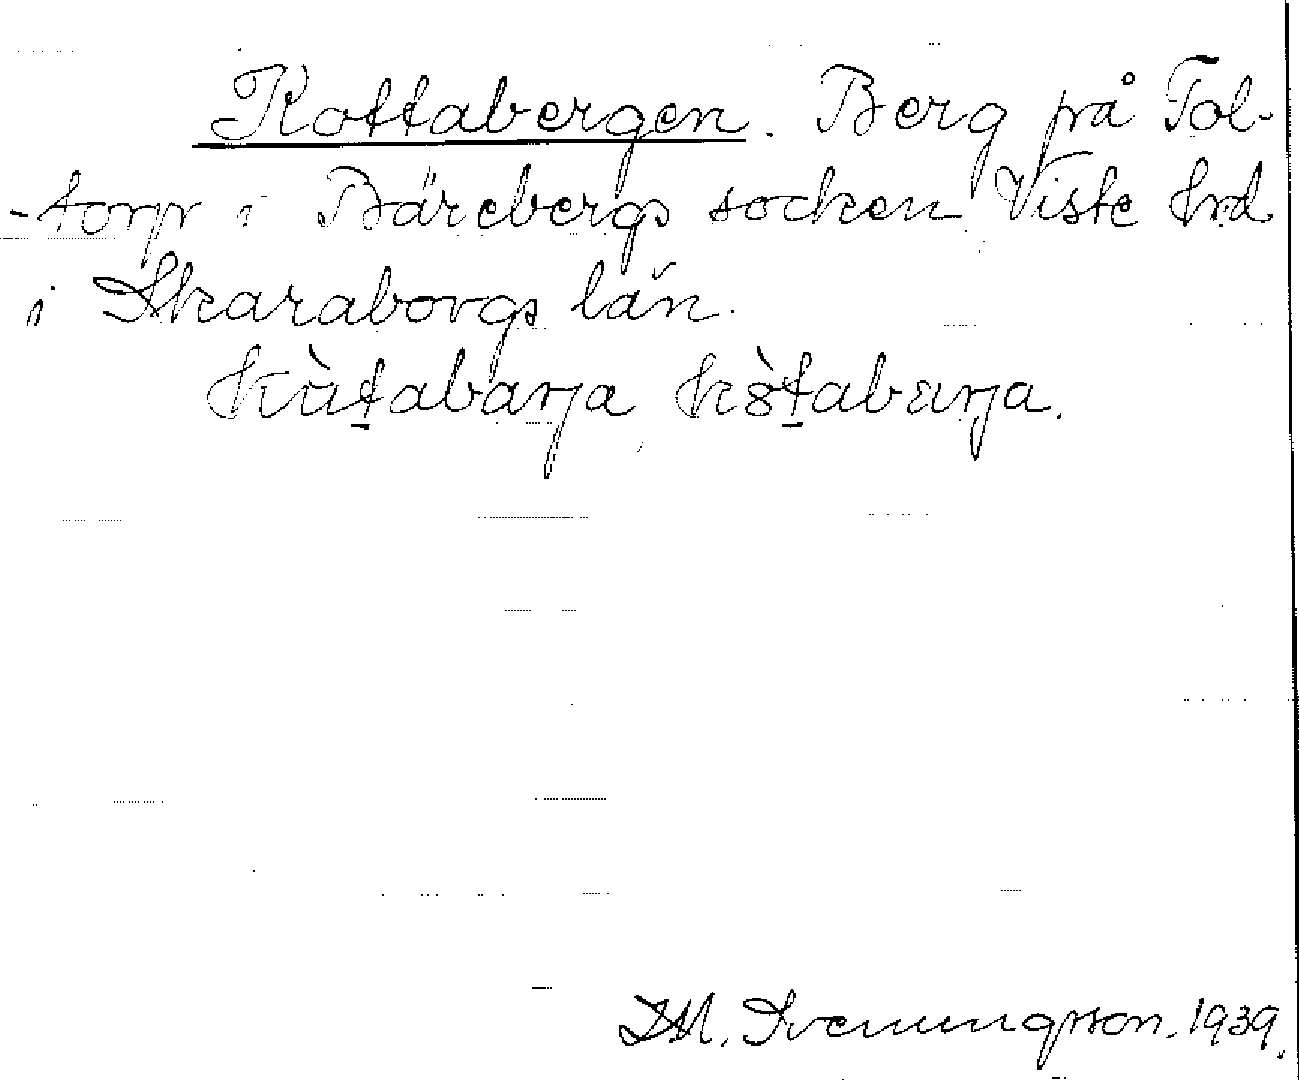 Kottabergen. Berg på Tol-
-torp i Bärebergs socken Viste hrd
i Skaraborgs län.
kùt̠abarja, kòt̠abærja.
J.M. Svenungsson. 1939.